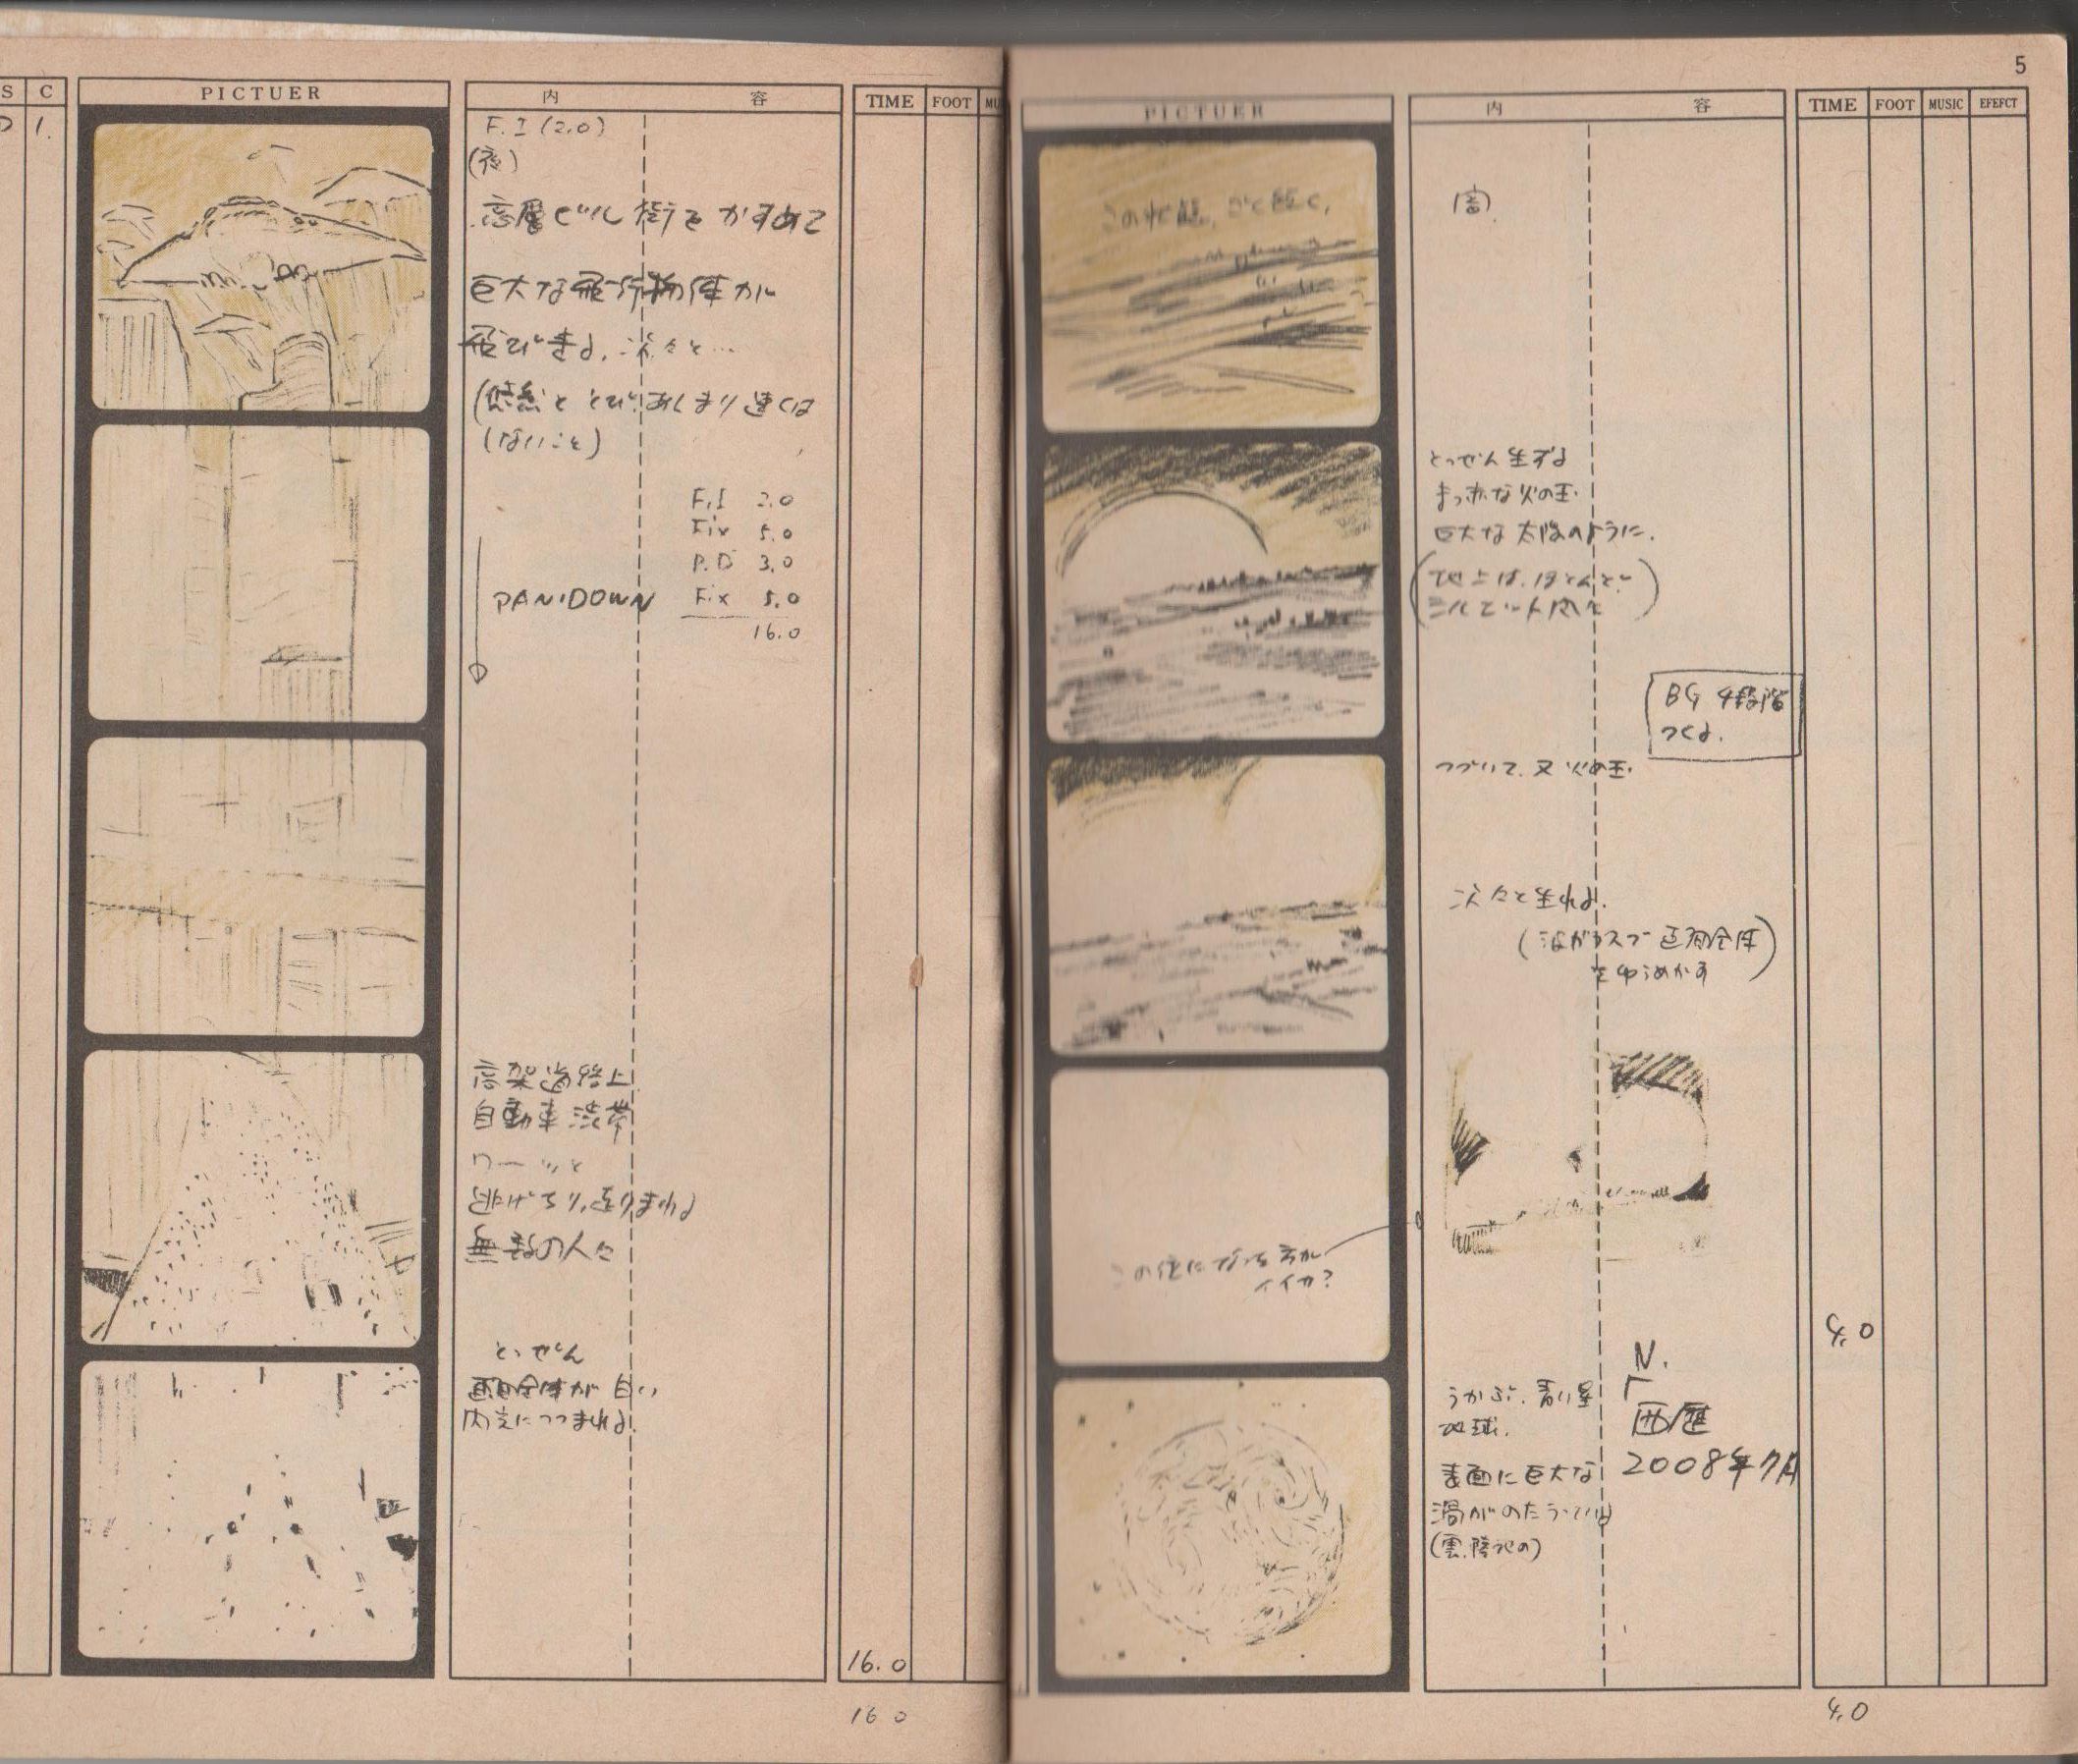 S C PICTUER 内 容 TIME FOOT MU
1.
F.I (2.0)
(夜)
高層ビル街をかすめて
巨大な飛行物体が
飛びきる。次々と…
(悠然ととび、あまり速くは
(ないこと)
F.I 2.0
Fix 5.0
P.D 3.0
PAN・DOWN
Fix 5.0
16.0
高架道路上
自動車渋帯
ワーッと
逃げちり、走りまわる
無数の人々
とつぜん
画面全体が白い
閃光につつまれる
16.0
16 0
5
PICTUER 内 容 TIME FOOT MUSIC EFEFCT
この状態、ごく短く、
闇
とつぜん生ずる
まっ赤な火の玉
巨大な太陽のように.
(地上は、ほとんど
シルエット風に)
BG 4段階
つくる.
つづいて、又火の玉.
次々と生れる.
(波ガラスで画面全体
をゆらめかす)
この位になった方が
イイカ?
4.0
N.
「
西歴
2008年7月
うかぶ、青い星
地球.
表面に巨大な
渦がのたうっている
(雲、陸地の)
4.0